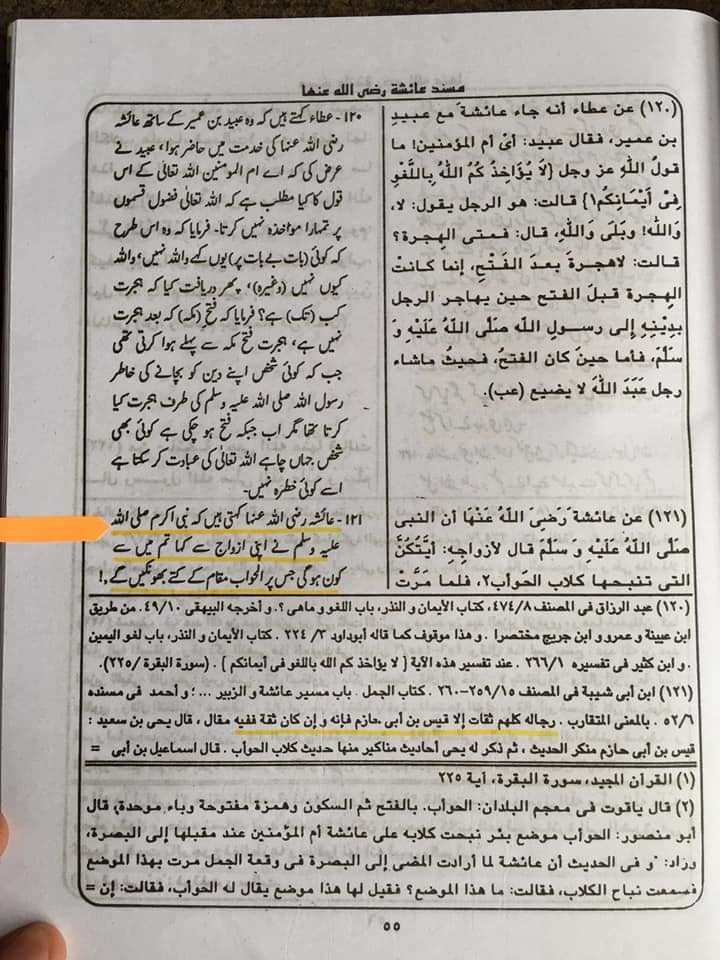 مسند عائشة رضى الله عنها
(١٢٠) عن عطاء أنه جاء عائشةَ مع عبيدِ
بن عمير، فقال عبيد: أىْ أم المؤمنين! ما
قولُ اللهِ عز وجل {لَا يُؤَاخِذُ كُمُ اللهُ بِاللَّغْوِ
فِىْ أَيْمَانِكُم١} قالت: هو الرجل يقول: لا،
وَاللهِ! وبَلَى وَاللهِ، قال: فمتى الهجرة؟
قالت: لاهجرةَ بعدَ الفَتْحِ، إنما كانتْ
الهجرة قبلَ الفتح حين يهاجر الرجل
بدِيْنِهِ إلى رسولِ الله صَلَّى اللهُ عَلَيْهِ وَ
سَلَّمَ، فأما حينَ كان الفتحُ، فحيثُ ماشاء
رجل عَبَدَ اللهَ لَا يضيع (عب).
(١٢١) عن عائشة رَضِىَ اللهُ عَنْهَا أن النبى
صَلَّى اللهُ عَلَيْهِ وَ سَلَّمَ قال لأزواجِهِ: أيَّتُكُنَّ
التى تنبحها كلاب الحَوأب٢، فلما مَرَّتْ
١٢٠ - عطاء کہتے ہیں کہ وہ عبید بن عمیر کے ساتھ عائشہ
رضی اللہ عنہا کی خدمت میں حاضر ہوا، عبید نے
عرض کی کہ اے ام المومنین اللہ تعالٰی کے اس
قول کا کیا مطلب ہے کہ اللہ تعالٰی فضول قسموں
پر تمہارا مؤاخذہ نہیں کرتا۔ فرمایا کہ وہ اس طرح
کہ کوئی (بات بے بات پر) یوں کہے واللہ نہیں، واللہ
کیوں نہیں (وغیرہ)، پھر دریافت کیا کہ ہجرت
کب (تک) ہے؟ فرمایا کہ فتح (مکہ) کہ بعد ہجرت
نہیں ہے، ہجرت فتح مکہ سے پہلے ہوا کرتی تھی
جب کہ کوئی شخص اپنے دین کو بچانے کی خاطر
رسول اللہ صلی اللہ علیہ وسلم کی طرف ہجرت کیا
کرتا تھا مگر اب جبکہ فتح ہو چکی ہے کوئی بھی
شخص جہاں چاہے اللہ تعالٰی کی عبادت کر سکتا ہے
اسے کوئی خطرہ نہیں۔
١٢١ - عائشہ رضی اللہ عنہا کہتی ہیں کہ نبی اکرم صلی اللہ
علیہ وسلم نے اپنی ازواج سے کہا تم میں سے
کون ہوگی جس پر الحواب مقام کے کتے بھونکیں گے،!
(١٢٠) عبد الرزاق فى المصنف ٤٧٤/٨، كتاب الأيمان و النذر، باب اللغو و ماهى ؟. و أخرجه البيهقى ٤٩/١٠. من طريق
ابن عيينة و عمرو و ابن جريج مختصرا . و هذا موقوف كما قاله أبوداود ٣/ ٢٢٤ . كتاب الأيمان و النذر، باب لغو اليمين
. و ابن كثير فى تفسيره ٢٦٦/١ . عند تفسير هذه الآية { لا يؤاخذ كم الله باللغو فى أيمانكم } . (سورة البقرة /٢٢٥).
(١٢١) ابن أبى شيبة فى المصنف ٢٥٩/١٥-٢٦٠ . كتاب الجمل . باب مسير عائشة و الزبير ...؛ و أحمد فى مسنده
٥٢/٦ . بالمعنى المتقارب . رجاله كلهم ثقات إلا قيس بن أبى حازم فإنه و إن كان ثقة ففيه مقال ، قال يحى بن سعيد :
قيس بن أبى حازم منكر الحديث ، ثم ذكر له يحى أحاديث مناكير منها حديث كلاب الحوأب . قال اسماعيل بن أبى =
(١) القرآن المجيد، سورة البقرة، آية ٢٢٥
(٢) قال ياقوت فى معجم البلدان: الحوأب. بالفتح ثم السكون وهمزة مفتوحة وباء موحدة، قال
أبو منصور: الحوأب موضع بئر نبحت كلابه على عائشة أم المؤمنين عند مقبلها إلى البصرة،
وزاد: و فى الحديث أن عائشة لما أرادت المضى إلى البصرة فى وقعة الجمل مرت بهذا الموضع
فسمعت نباح الكلاب، فقالت: ما هذا الموضع؟ فقيل لها هذا موضع يقال له الحوأب، فقالت: إن =
٥٥